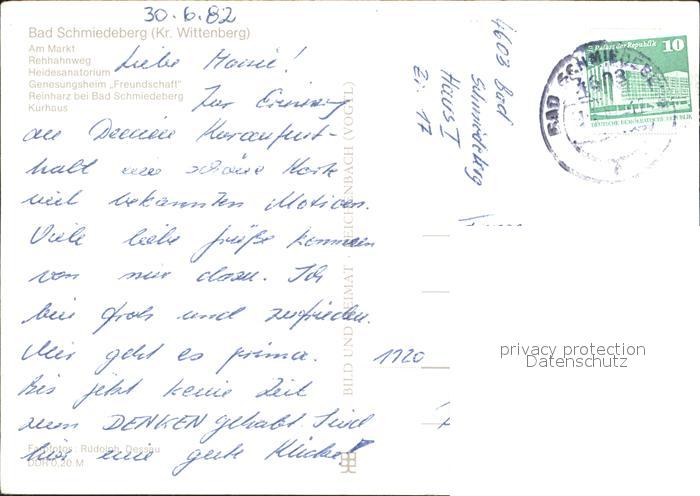 30.6.82
Bad Schmiedeberg (Kr. Wittenberg)
Am Markt
Rehhahnweg
Heidesanatorium
Genesungsheim „Freundschaft"
Reinharz bei Bad Schmiedeberg
Kurhaus
Liebe Mausi!
Zur
an Deinen Kuraufent-
halt eine schöne Karte
mit bekannten Motiven.
Viele liebe Grüße kommen
von mir dazu. Ich
bin froh und zufrieden.
Mir geht es prima.
Bis jetzt keine Zeit
zum DENKEN gehabt. Sind
hier eine gute Klicke!
Farbfotos: Rudolph, Dessau
DDR 0,20 M
BILD UND HEIMAT · REICHENBACH (VOGTL)
4603 Bad
Schmiedeberg
Haus I
Zi. 17
1920
Palast der Republik 10
DEUTSCHE DEMOKRATISCHE REPUBLIK
BAD SCHMIEDEBERG
4603
privacy protection
Datenschutz